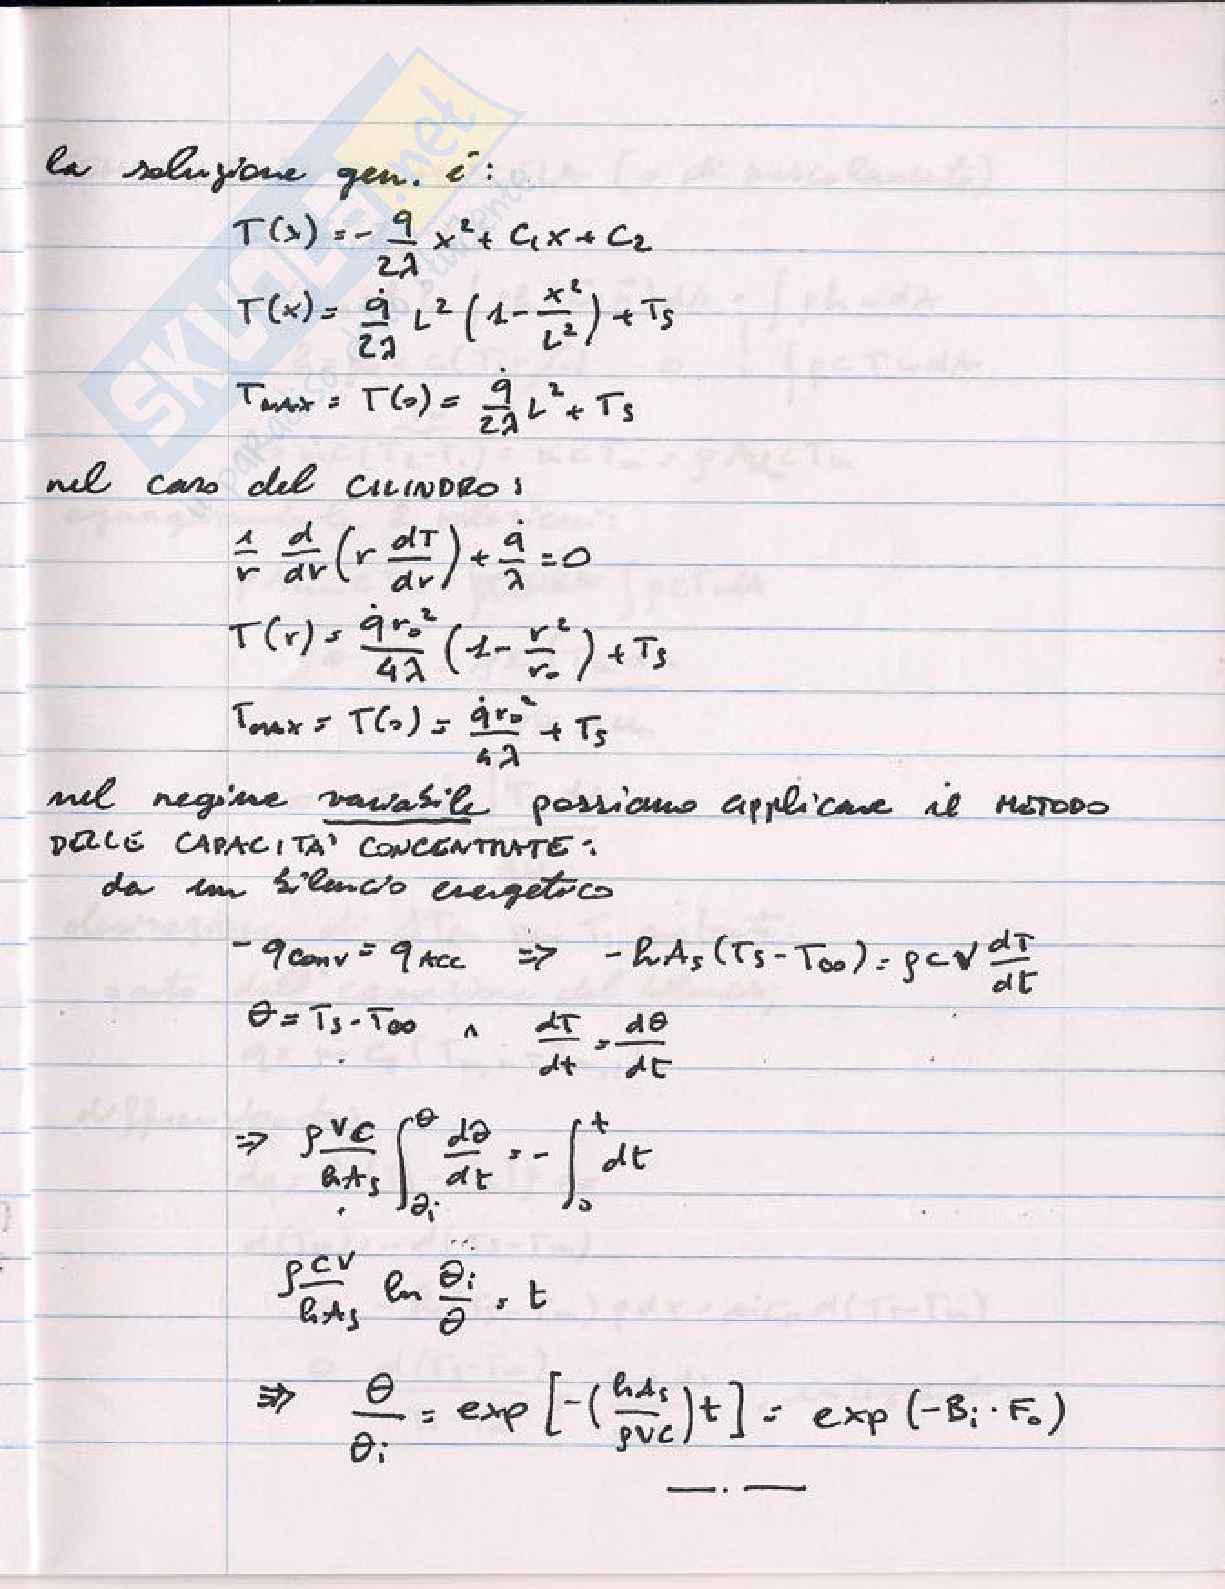 la soluzione gen. è:
T(x) = - q/2λ x² + C₁x + C₂
T(x) = q̇/2λ L² (1 - x²/L²) + Ts
Tmax = T(0) = q̇/2λ L² + Ts
nel caso del CILINDRO:
1/r d/dr (r dT/dr) + q̇/λ = 0
T(r) = q̇r₀²/4λ (1 - r²/r₀) + Ts
Tmax = T(0) = q̇r₀²/4λ + Ts
nel regime variabile possiamo applicare il METODO
DELLE CAPACITA' CONCENTRATE:
da un bilancio energetico
- qconv = qacc ⇒ - hAs (Ts - T∞) = ρcV dT/dt
θ = Ts - T∞ ∧ dT/dt = dθ/dt
⇒ ρVc/hAs ∫θi^θ dθ/dt = - ∫0^t dt
ρcV/hAs ln θi/θ = t
⇒ θ/θi = exp [-(hAs/ρVc) t] = exp (-Bi · Fo)
SKUOLA.net